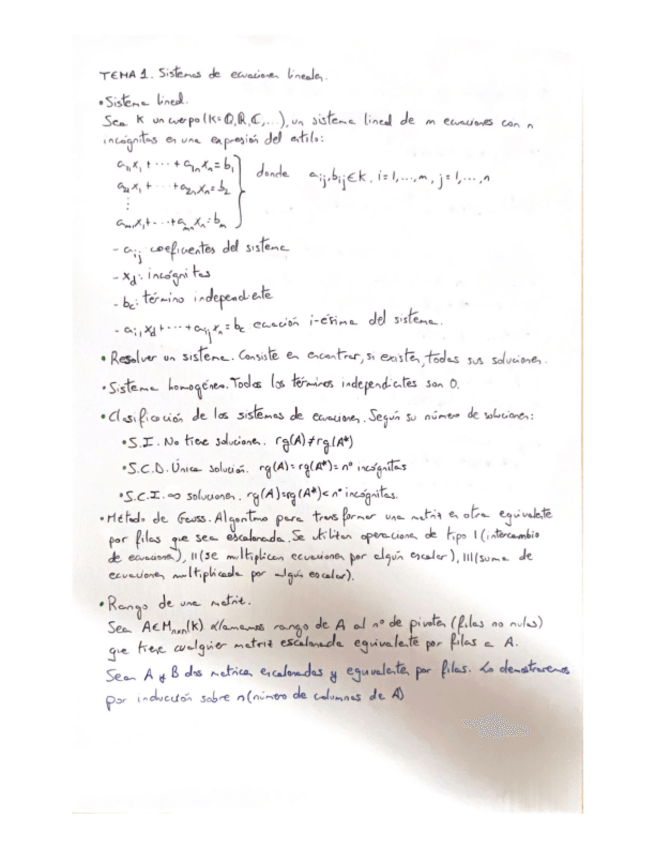 TEMA 1. Sistemas de ecuaciones lineales.
• Sistema lineal.
Sea K un cuerpo (K=ℚ,ℝ,ℂ,...), un sistema lineal de m ecuaciones con n
incógnitas es una expresión del estilo:
a₁₁x₁+ ··· +a₁ₙxₙ=b₁
a₂₁x₁+ ··· +a₂ₙxₙ=b₂ donde aᵢⱼ,bᵢⱼ∈K, i=1,...,m, j=1,...,n
⋮
aₘ₁x₁+···+aₘₙxₙ=bₘ
- aᵢⱼ coeficientes del sistema
- xⱼ: incógnitas
- bᵢ: término independiente
- aᵢ₁x₁+···+aᵢⱼxₙ=bᵢ ecuación i-ésima del sistema.
• Resolver un sistema. Consiste en encontrar, si existen, todas sus soluciones.
• Sistema homogéneo. Todos los términos independientes son 0.
• Clasificación de los sistemas de ecuaciones. Según su número de soluciones:
• S.I. No tiene soluciones. rg(A)≠rg(A*)
• S.C.D. Única solución. rg(A)=rg(A*)=nº incógnitas
• S.C.I. ∞ soluciones. rg(A)=rg(A*)<nº incógnitas.
• Método de Gauss. Algoritmo para transformar una matriz en otra equivalente
por filas que sea escalonada. Se utilizan operaciones de tipo I (intercambio
de ecuaciones), II (se multiplican ecuaciones por algún escalar), III (suma de
ecuaciones multiplicada por algún escalar).
• Rango de una matriz.
Sea A∈Mₘₓₙ(K). Llamamos rango de A al nº de pivotes (filas no nulas)
que tiene cualquier matriz escalonada equivalente por filas a A.
Sean A y B dos matrices escalonadas y equivalentes por filas. Lo demostraremos
por inducción sobre n (número de columnas de A)